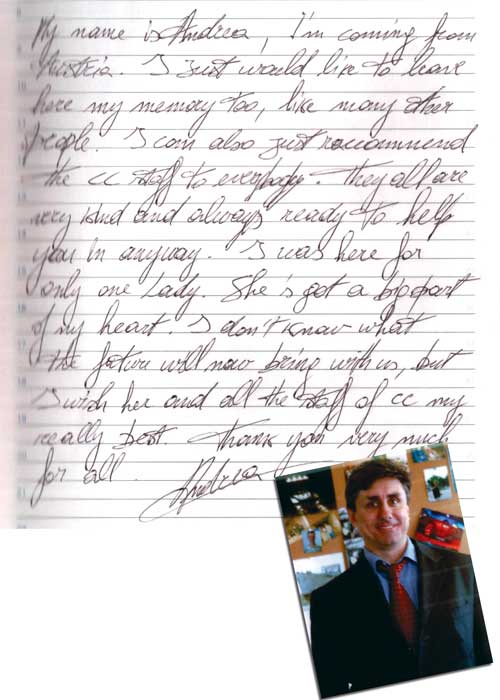 My name is Andrea, I'm coming from
Austria. I just would like to leave
here my memory too, like many other
people. I can also just recommend
the CC staff to everybody. They all are
very kind and always ready to help
you in anyway. I was here for
only one Lady. She's got a big part
of my heart. I don't know what
the future will now bring with us, but
I wish her and all the staff of CC my
really best. Thank you very much
for all.
Andrea